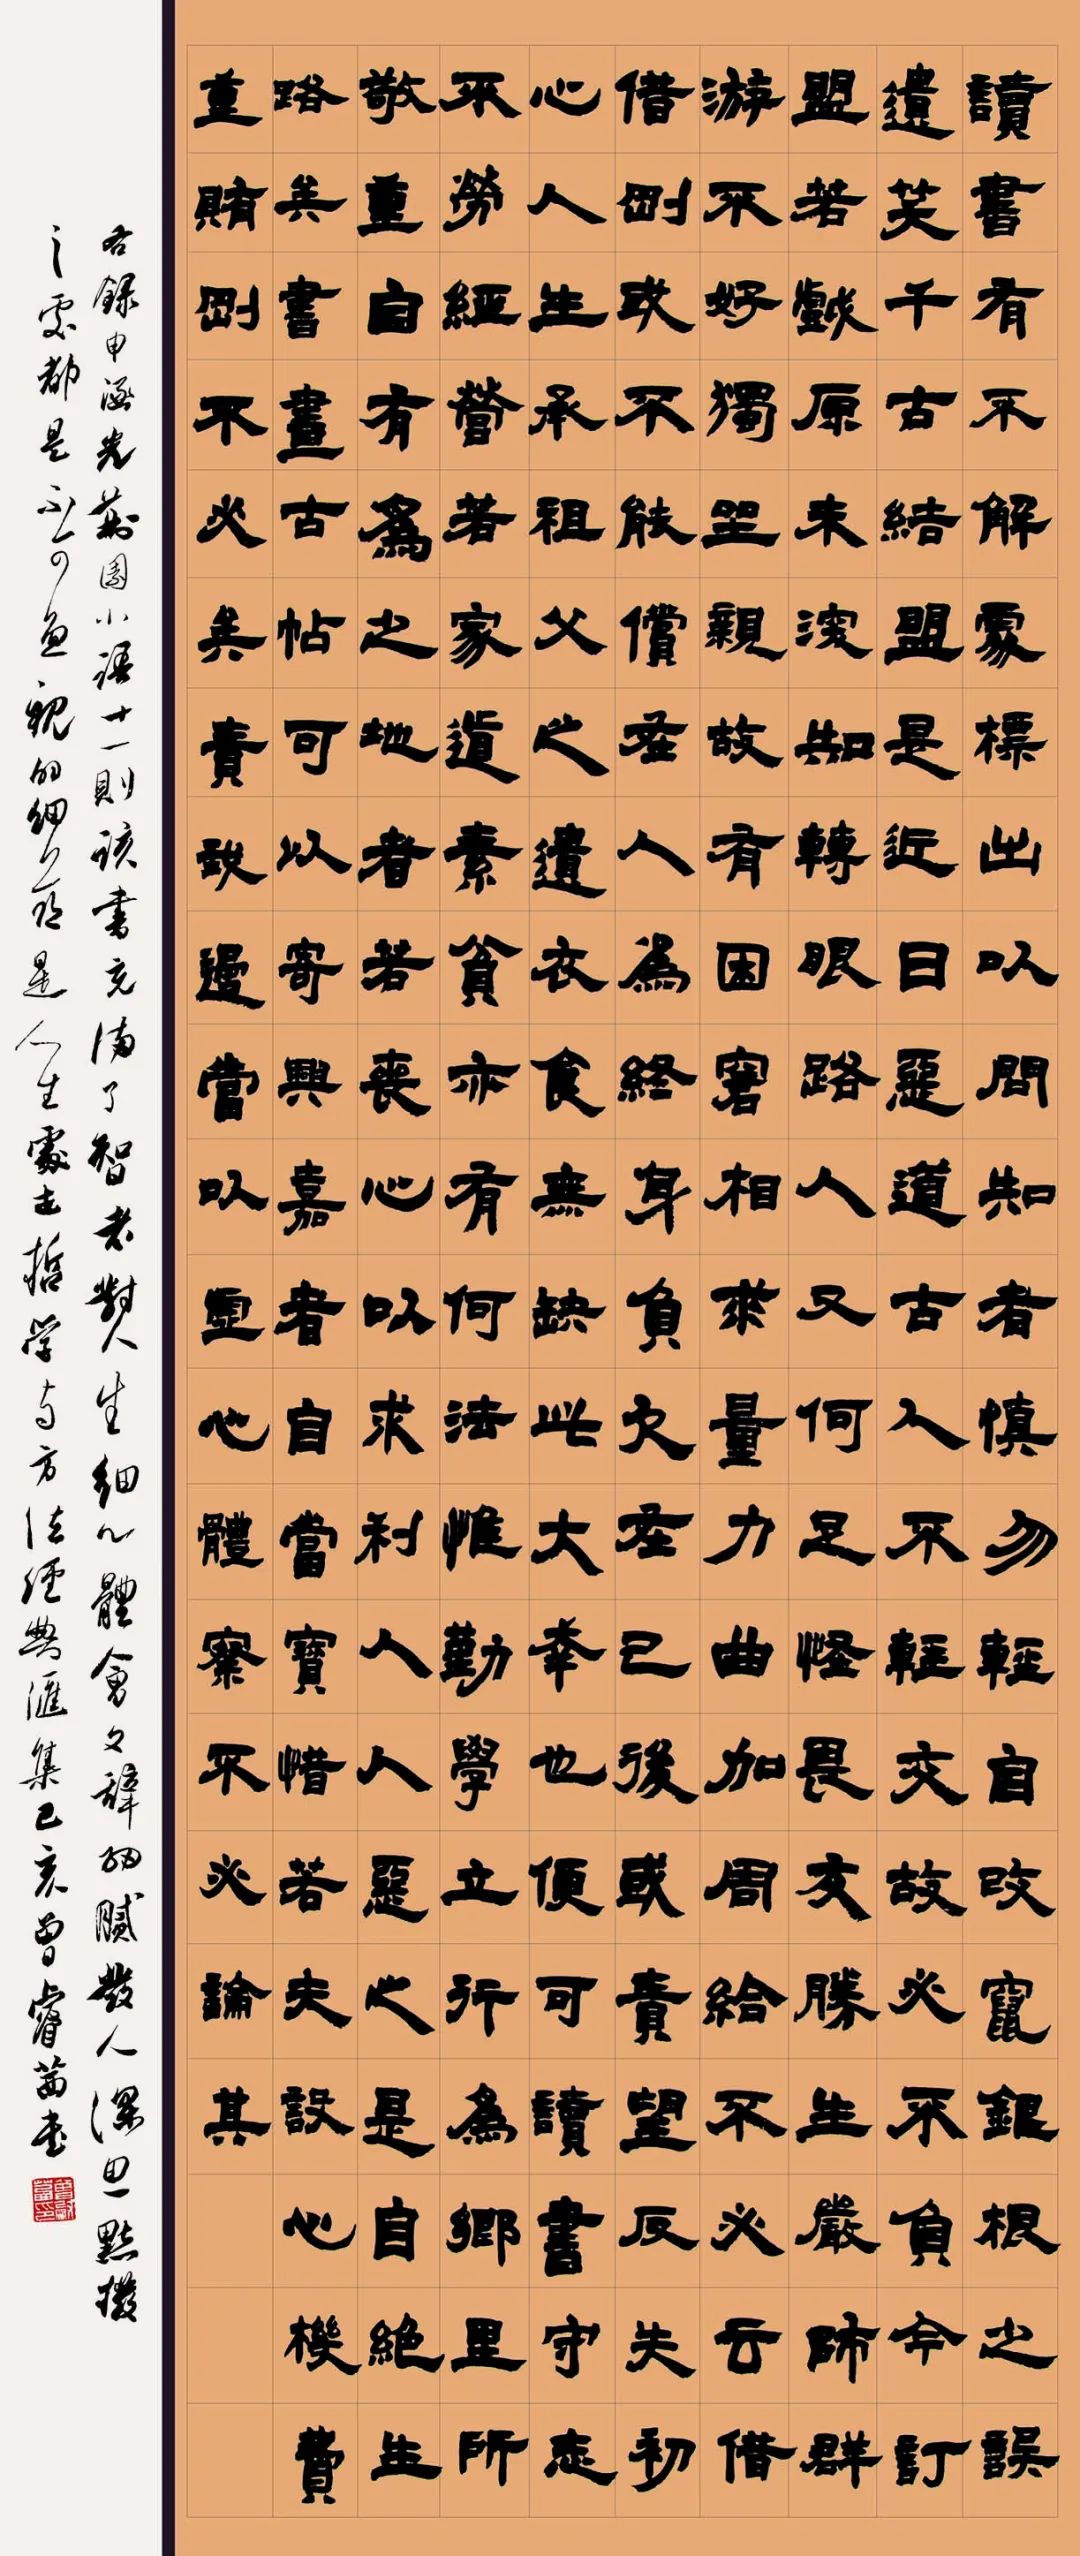 讀書有不解處標出以問知者慎勿輕自改竄銀根之誤
遺笑千古結盟是近日惡道古人不輕交故必不負今訂
盟若戲原未深知轉眼路人又何足怪畏友勝生嚴師群
游不好獨坐親故有困窘相求量力曲加周給不必云借
借則或不能償在人為終身負欠在己後或責望反失初
心人生承祖父之遺衣食無缺此大幸也便可讀書守志
不勞經營若家道素貧亦有何法惟勤學立行為鄉里所
敬重自有為之地者若喪心以求利人人惡之是自絕生
路矣書畫古帖可以寄興嘉者自當寶惜若夫設心機費
重賄則不必矣責我過當以虛心體察不必論其
右錄申涵光荊園小語十一則該書充滿了智者對人生細心體會文辭細膩發人深思點撥
之處都是不可忽視的細節是人生處世哲學与方法經典匯集己亥曾睿茜書